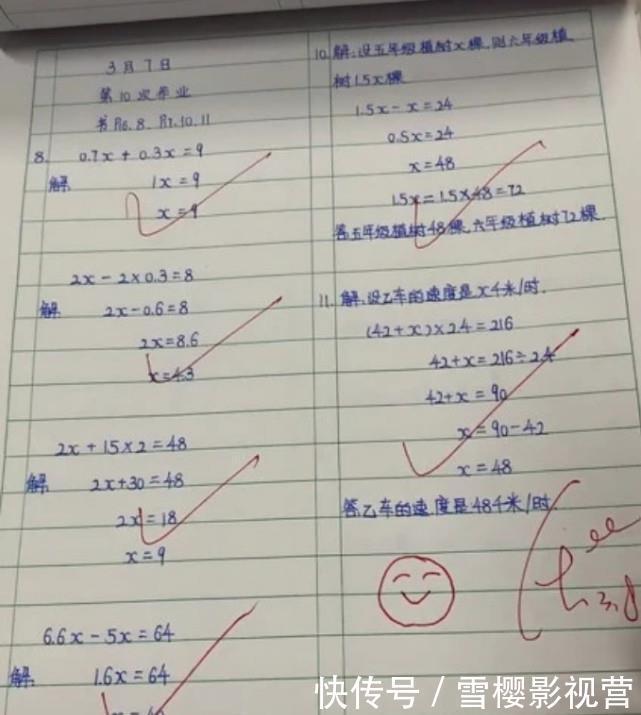 3月7日
第10次作业
书P6.8. P7.10.11
8. 0.7x + 0.3x = 9
解 1x = 9
x = 9
2x - 2×0.3 = 8
解 2x - 0.6 = 8
2x = 8.6
x = 4.3
2x + 15×2 = 48
解 2x + 30 = 48
2x = 18
x = 9
6.6x - 5x = 64
解 1.6x = 64
x = 40
10. 解:设五年级植树x棵,则六年级植
树1.5x棵
1.5x - x = 24
0.5x = 24
x = 48
1.5x = 1.5×48 = 72
答五年级植树48棵,六年级植树72棵.
11. 解:设乙车的速度是x千米/时.
(42+x)×2.4 = 216
42+x = 216÷2.4
42+x = 90
x = 90-42
x = 48
答乙车的速度是48千米/时.
快传号 / 雪樱影视营